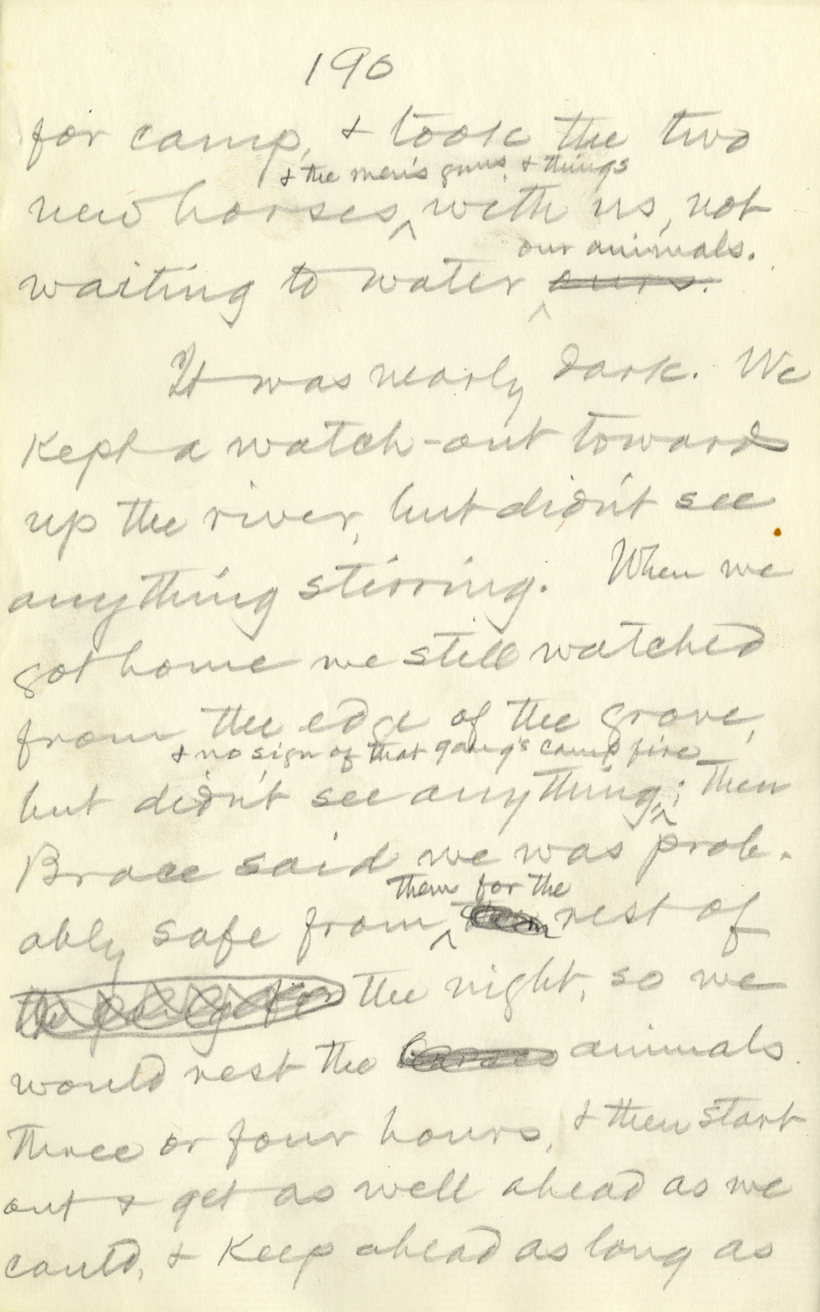 190
for camp, & took the two
& the men's guns & things
new horses, ^ with us, not
our animals.
waiting to water ^ ours.
It was nearly dark. We
kept a watch-out toward
up the river, but didn't see
anything stirring. When we
got home we still watched
from the edge of the grove,
& no sign of that gang's camp fire
but didn't see anything, ^; then
Brace said we was prob-
them for the
ably safe from ^ rest of
the gang for the night, so we
would rest the horses animals
three or four hours, & then start
out & get as well ahead as we
could, & keep ahead as long as